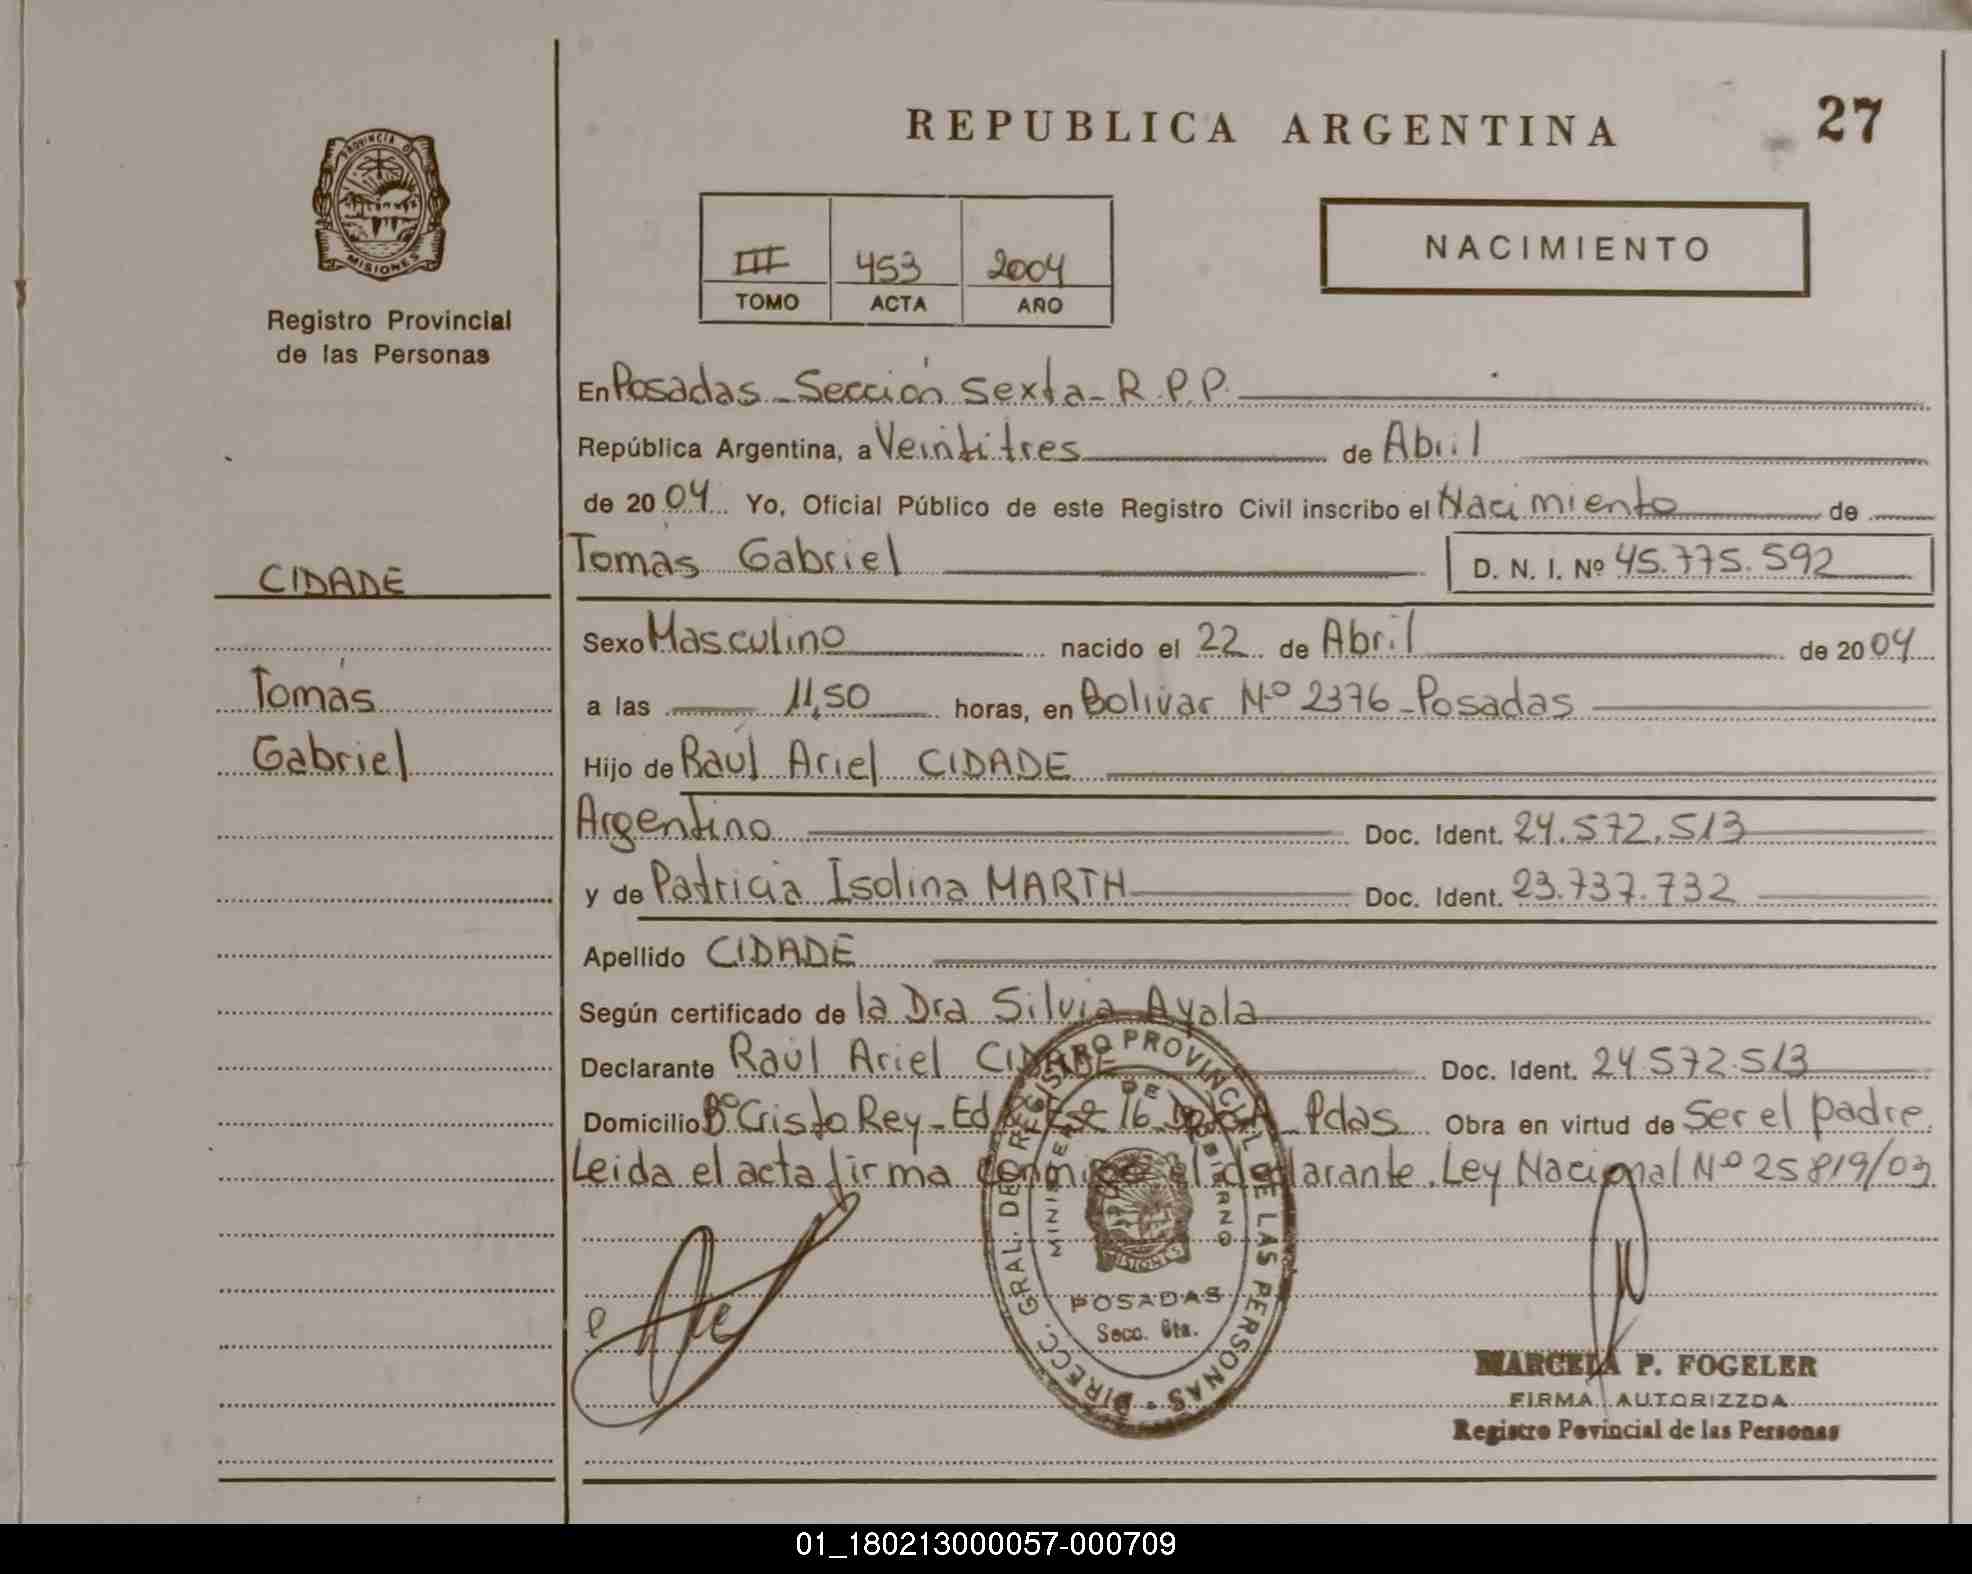 REPUBLICA ARGENTINA
27
PROVINCIA D
MISIONES
Registro Provincial
de las Personas
III 453 2004
TOMO ACTA AÑO
NACIMIENTO
En Posadas - Sección Sexta - R.P.P.
República Argentina, a Veintitres de Abril
de 2004 Yo, Oficial Público de este Registro Civil inscribo el Nacimiento de
Tomás Gabriel D. N. I. Nº 45.775.592
CIDADE
Tomás
Gabriel
Sexo Masculino nacido el 22 de Abril de 2004
a las 11,50 horas, en Bolivar Nº 2376 - Posadas
Hijo de Raúl Ariel CIDADE
Argentino Doc. Ident. 24.572.513
y de Patricia Isolina MARTH Doc. Ident. 23.737.732
Apellido CIDADE
Según certificado de la Dra Silvia Ayala
Declarante Raúl Ariel CIDADE Doc. Ident. 24.572.513
Domicilio Bº Cristo Rey - Ed 16 Pdas Obra en virtud de Ser el padre
Leida el acta firma conmigo el declarante. Ley Nacional Nº 25819/03
DIRECC. GRAL. DE REGISTRO PROVINCIAL DE LAS PERSONAS
MINISTERIO DE GOBIERNO
MISIONES
POSADAS
Secc. 6ta.
MARCELA P. FOGELER
FIRMA AUTORIZZDA
Registro Povincial de las Personas
01_180213000057-000709